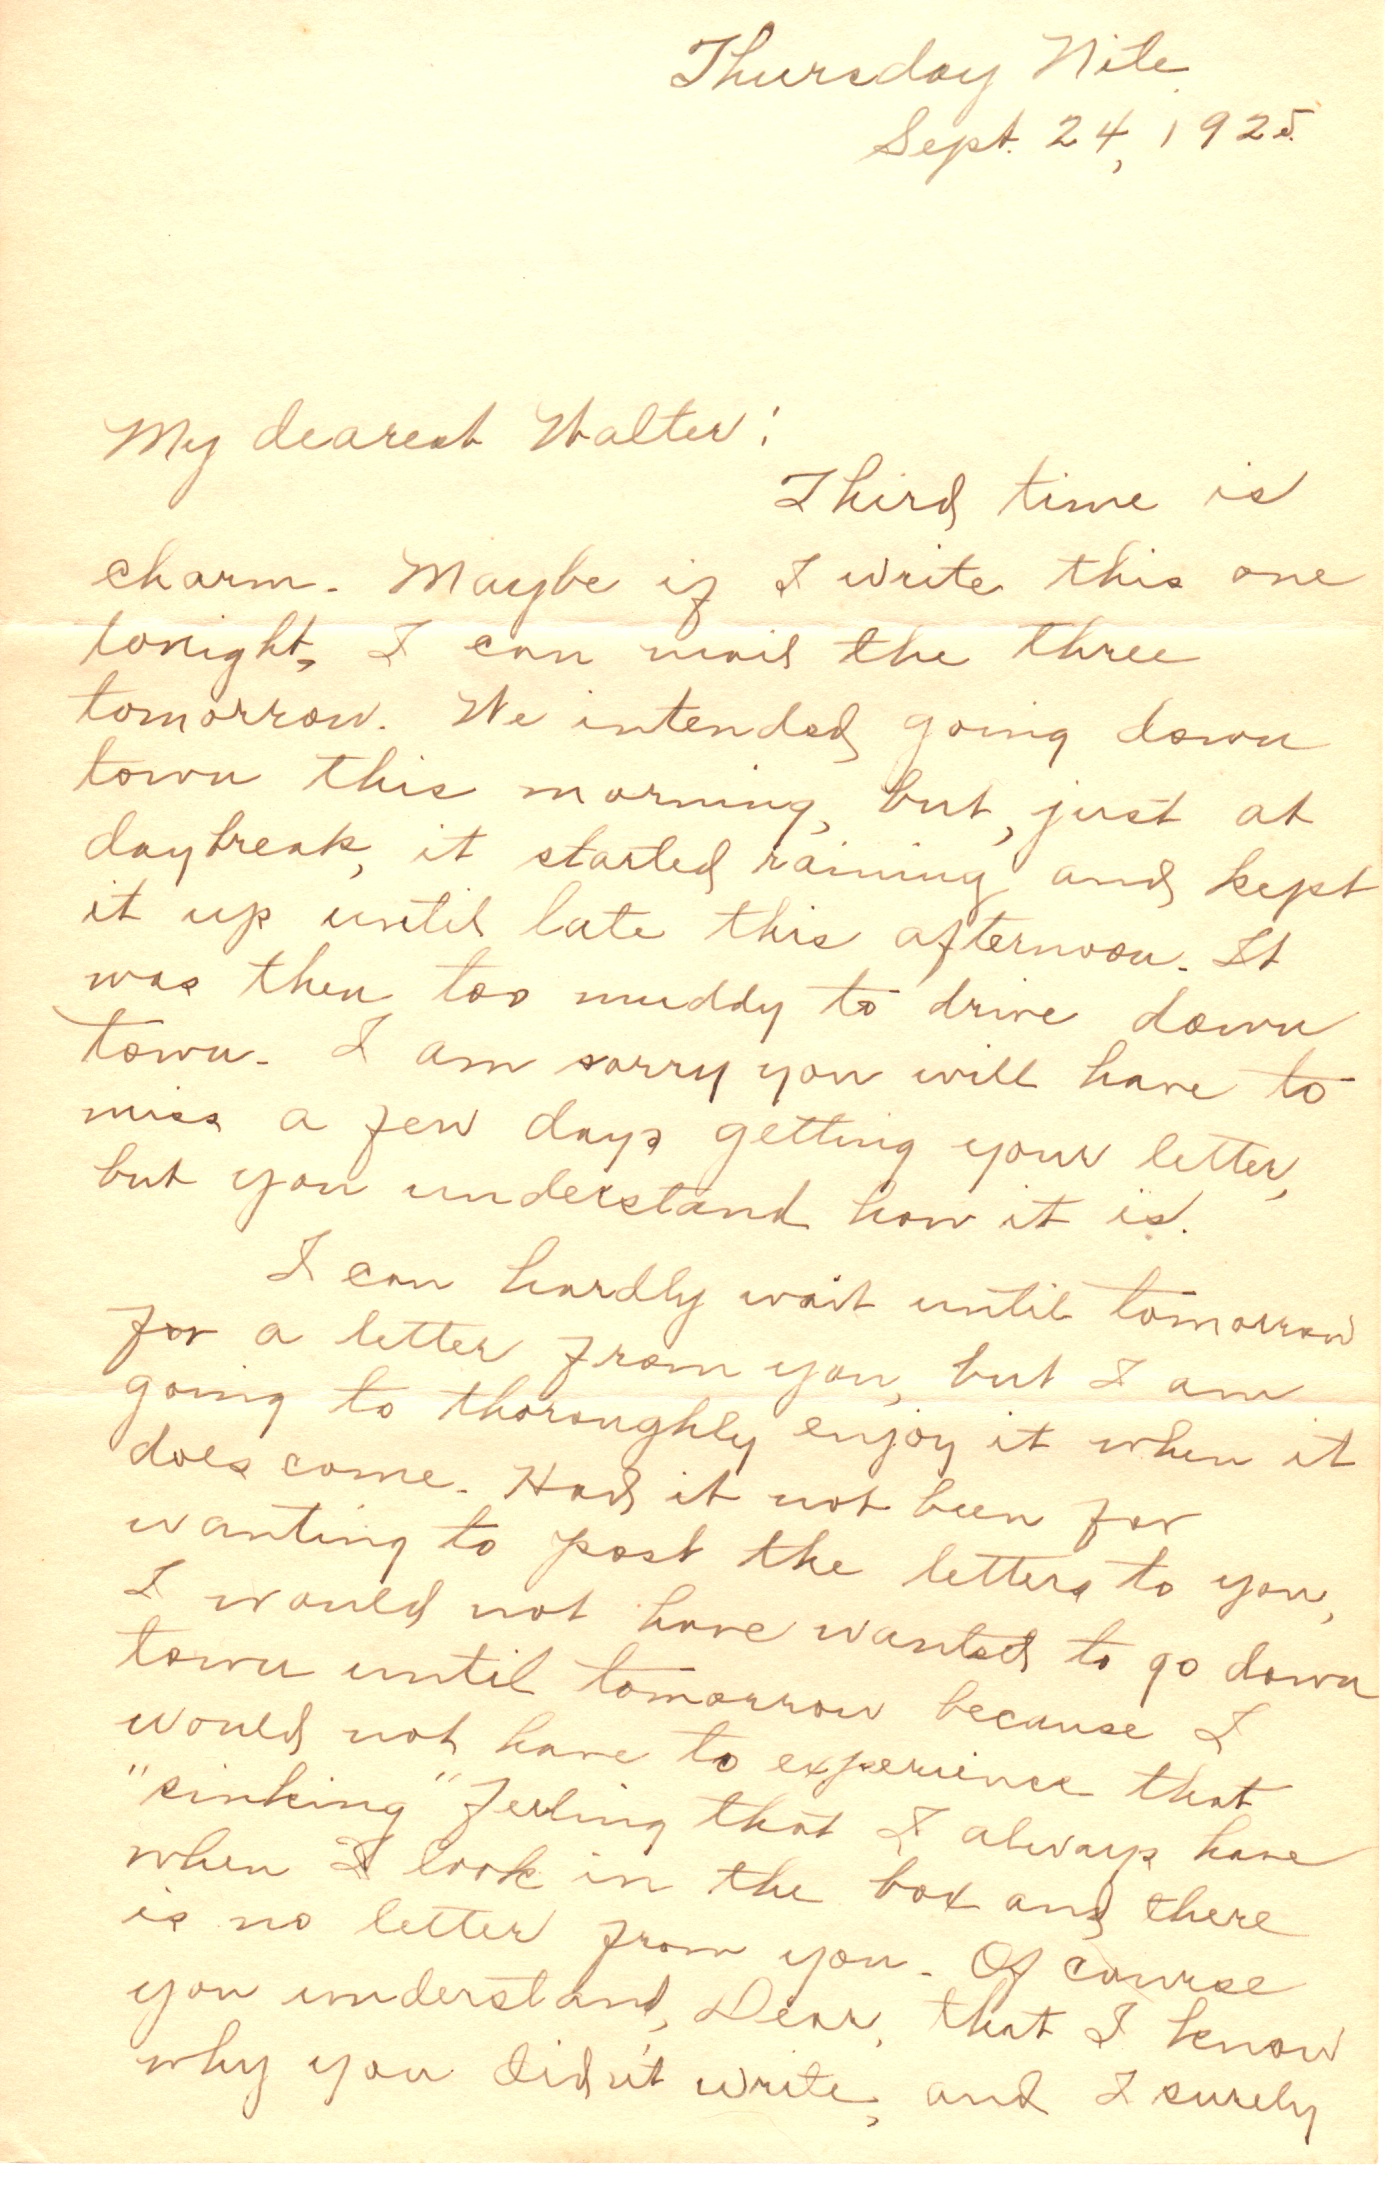 Thursday Nite.
Sept. 24, 1925.
My dearest Walter:
Third time is
charm. Maybe if I write this one
tonight, I can mail the three
tomorrow. We intended going down
town this morning, but, just at
daybreak, it started raining and kept
it up until late this afternoon. It
was then too muddy to drive down
town. I am sorry you will have to
miss a few days getting your letter,
but you understand how it is.
I can hardly wait until tomorrow
for a letter from you, but I am
going to thoroughly enjoy it when it
does come. Had it not been for
wanting to post the letters to you,
I would not have wanted to go down
town until tomorrow because I
would not have to experience that
"sinking" feeling that I always have
when I look in the box and there
is no letter from you. Of course
you understand, Dear, that I know
why you didn't write, and I surely